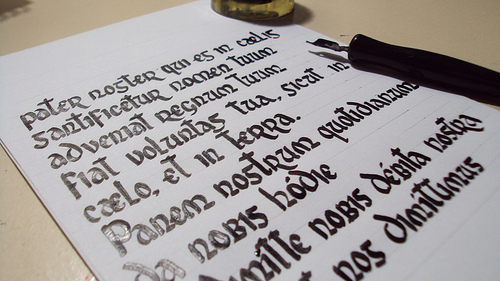 pater noster qui es in cælis
santificetur nomen tuum
adveniat regnum tuum
fiat voluntas tua, sicut in
cælo, et in terra.
Panem nostrum quotidianum
da nobis hódie
dimitte nobis débita nostra
nos dimittimus